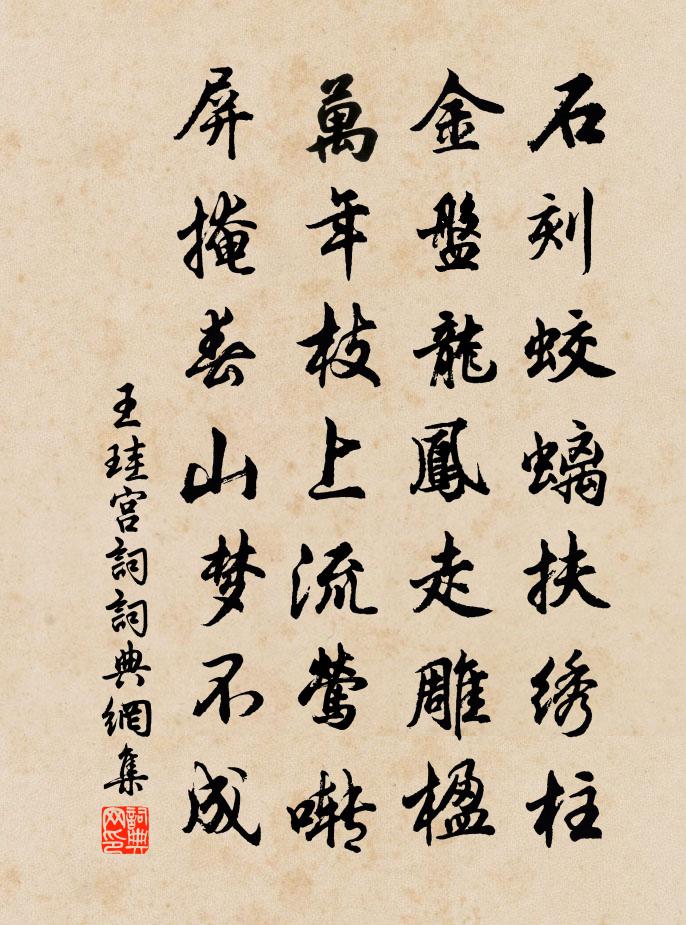 石刻蛟螭扶绣柱
金盤龍鳳走雕楹
萬年枝上流鶯囀
屏掩春山梦不成
王珪宫詞詞典網集
詞典网印